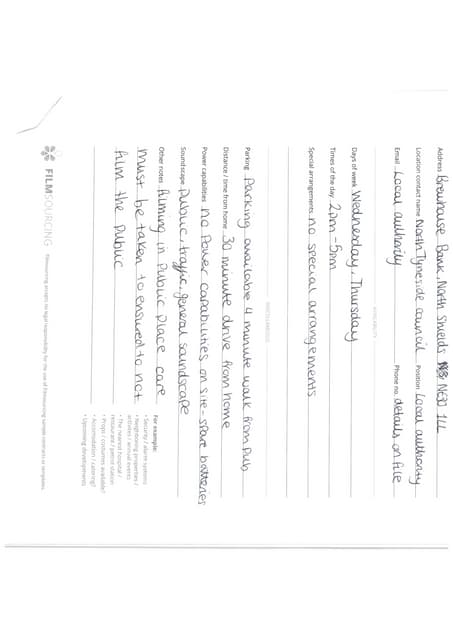 Address Brewhouse Bank, North Shields NE30 1LL
Location contact name North Tyneside council Position Local authority
Email Local authority Phone no. details on file
AVAILABILITY
Days of week Wednesday, Thursday
Times of the day 2pm - 5pm
Special arrangements no special arrangements
MISCELLANEOUS
Parking Parking available 4 minute walk from pub
Distance / time from home 30 minute drive from home
Power capabilities no power capabilities on site - spare batteries
Soundscape Public, traffic, general soundscape
Other notes filming in Public Place care
must be taken to ensured to not
film the public
For example:
• Security / alarm systems
• Neighbouring properties /
activities / annual events
• The nearest hospital /
restaurant / petrol station
• Props / costumes available?
• Accomodation / catering?
• Upcoming developments
FILMSOURCING Filmsourcing accepts no legal responsibility for the use of Filmsourcing sample contracts or templates.